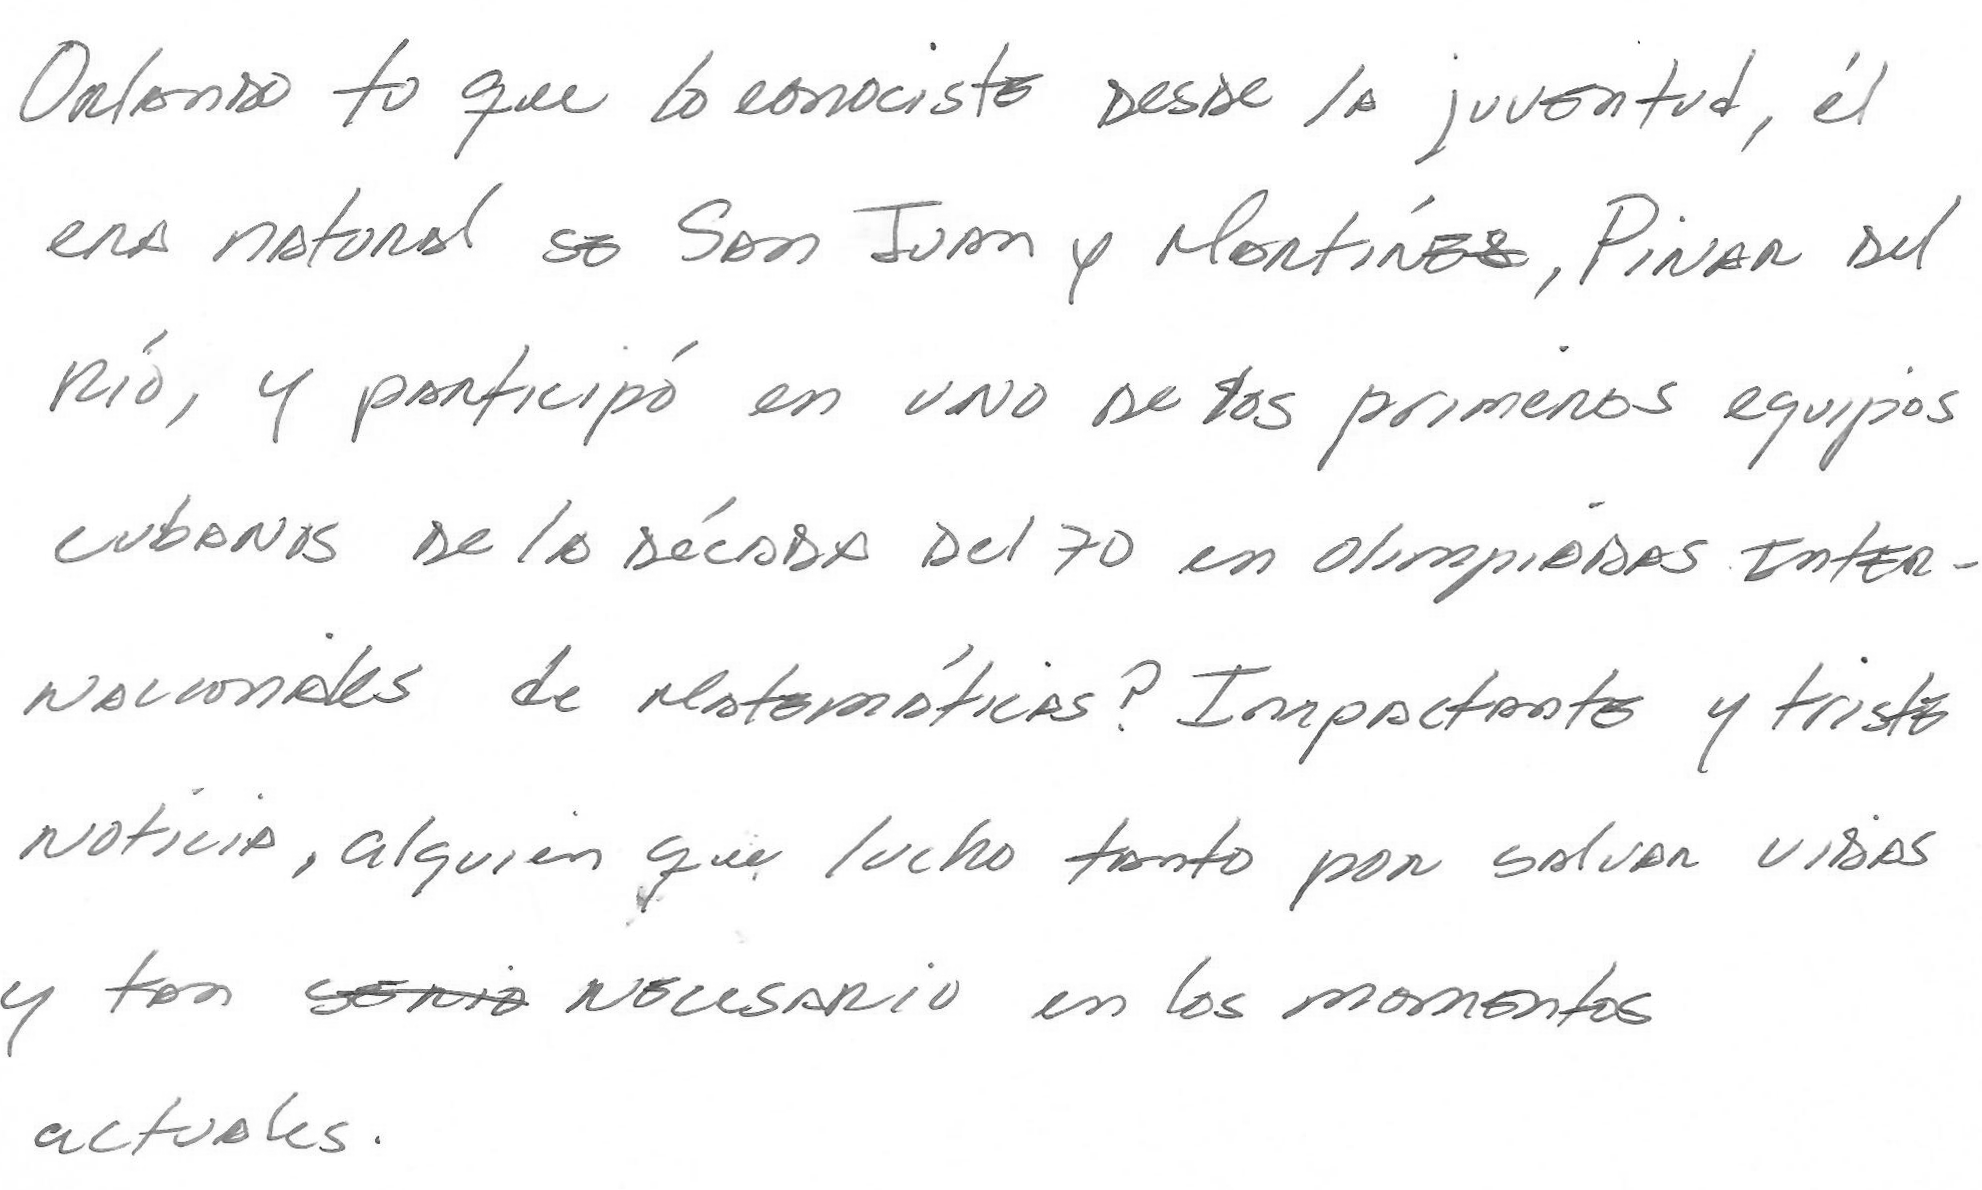 Orlando tu que lo conociste desde la juventud, él
era natural se San Juan y Martínez, Pinar del
Río, y participó en uno de los primeros equipos
cubanos de la década del 70 en olimpiadas Inter-
nacionales de Matemáticas? Impactante y triste
noticia, alguien que lucho tanto por salvar vidas
y tan necesario en los momentos
actuales.